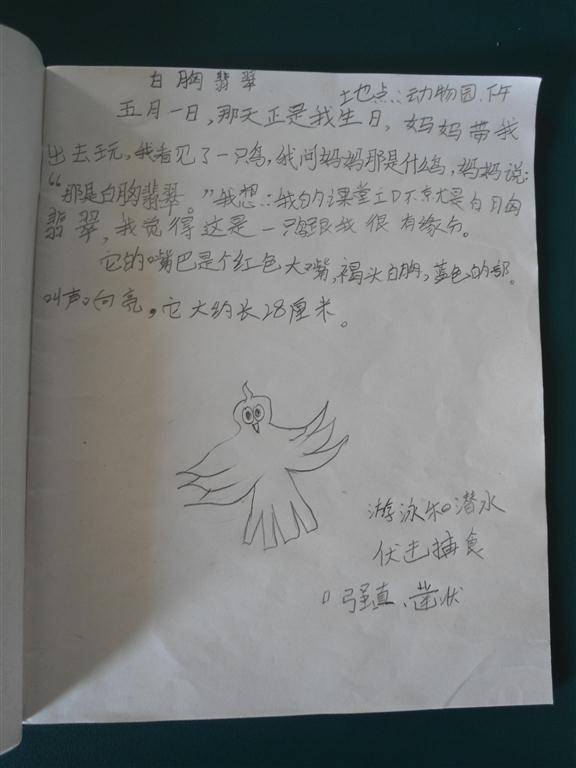 白胸翡翠
地点:动物园.下午
五月一日,那天正是我生日,妈妈带我
出去玩,我看见了一只鸟,我问妈妈那是什么鸟,妈妈说:
“那是白胸翡翠。”我想:我的课堂立口不京尤是白月匈
翡翠,我觉得这是一只鸟跟我很有缘分。
它的嘴巴是个红色大嘴,褐头白胸,蓝色的部。
叫声响亮,它大约长28厘米。
游泳和潜水
伏击捕食
强直、凿状